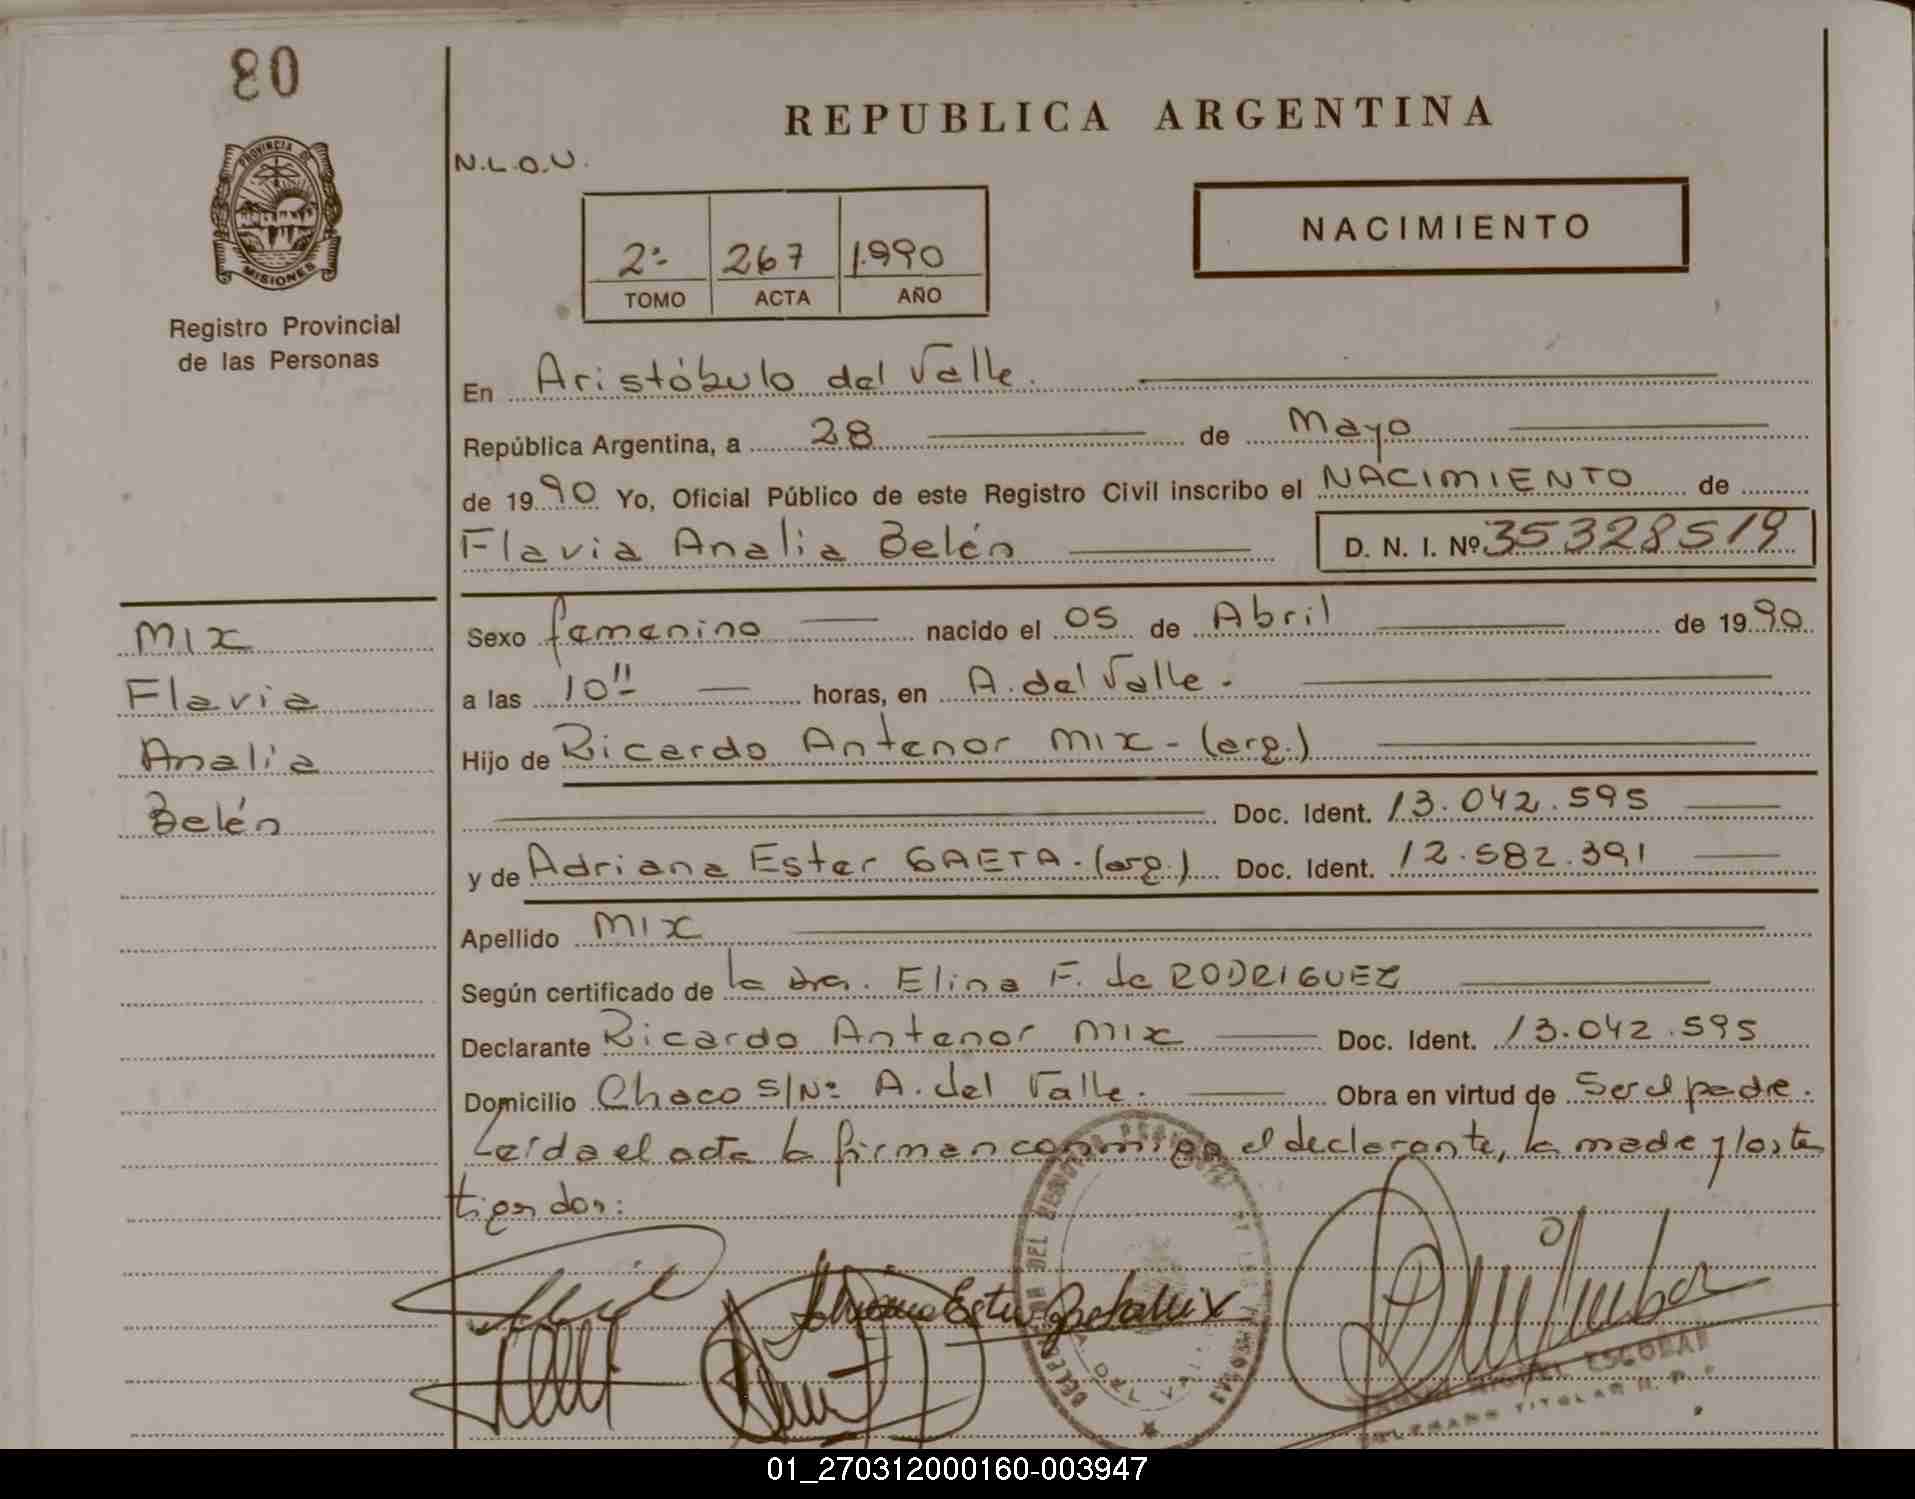 80
REPUBLICA ARGENTINA
N.L.O.U.
PROVINCIA DE
MISIONES
Registro Provincial
de las Personas
2º 267 1.990
TOMO ACTA AÑO
NACIMIENTO
En Aristóbulo del Valle.
República Argentina, a 28 de Mayo
de 1990 Yo, Oficial Público de este Registro Civil inscribo el NACIMIENTO de
Flavia Analia Belén D. N. I. Nº 35328519
MIX
Flavia
Analia
Belén
Sexo femenino nacido el 05 de Abril de 1990
a las 10 horas, en A. del Valle.
Hijo de Ricardo Antenor MIX - (arg.)
Doc. Ident. 13.042.595
y de Adriana Ester GAETA. (arg.) Doc. Ident. 12.582.391
Apellido MIX
Según certificado de la Dra. Elina F. de RODRIGUEZ
Declarante Ricardo Antenor MIX Doc. Ident. 13.042.595
Domicilio Chaco S/Nº A. del Valle. Obra en virtud de Ser el padre.
Leída el acta la firman conmigo el declarante, la madre y los tes
tigos dos:
MIGUEL ESCOBAR
TITULAR
01_270312000160-003947